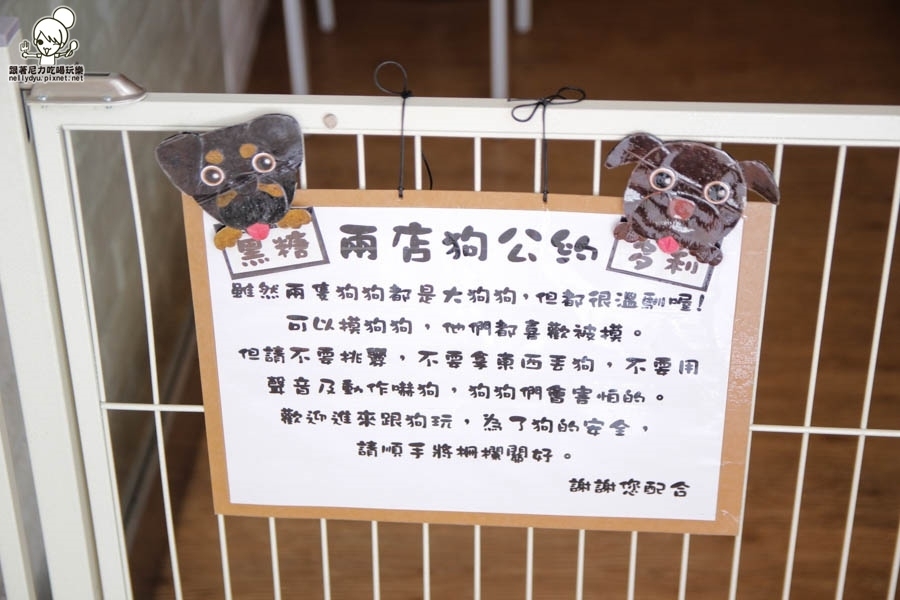 跟著尼力吃喝玩樂
nellydyu.pixnet.net
黑糖
兩店狗公約
多利
雖然兩隻狗狗都是大狗狗，但都很溫馴喔！
可以摸狗狗，他們都喜歡被摸。
但請不要挑釁，不要拿東西丟狗，不要用
聲音及動作嚇狗，狗狗們會害怕的。
歡迎進來跟狗玩，為了狗的安全，
請順手將柵欄關好。
謝謝您配合